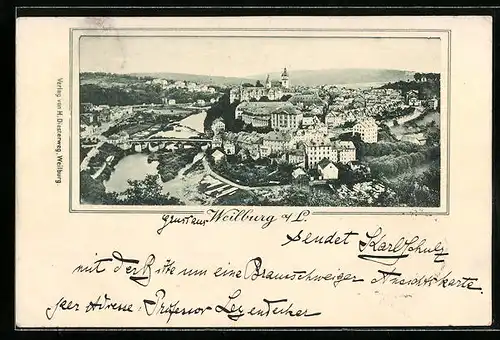 Verlag von H. Diesterweg, Weilburg.
Gruss aus Weilburg a/L.
sendet Karl Schulz
mit der Bitte um eine Braunschweiger Ansichtskarte.
per Adresse: Professor